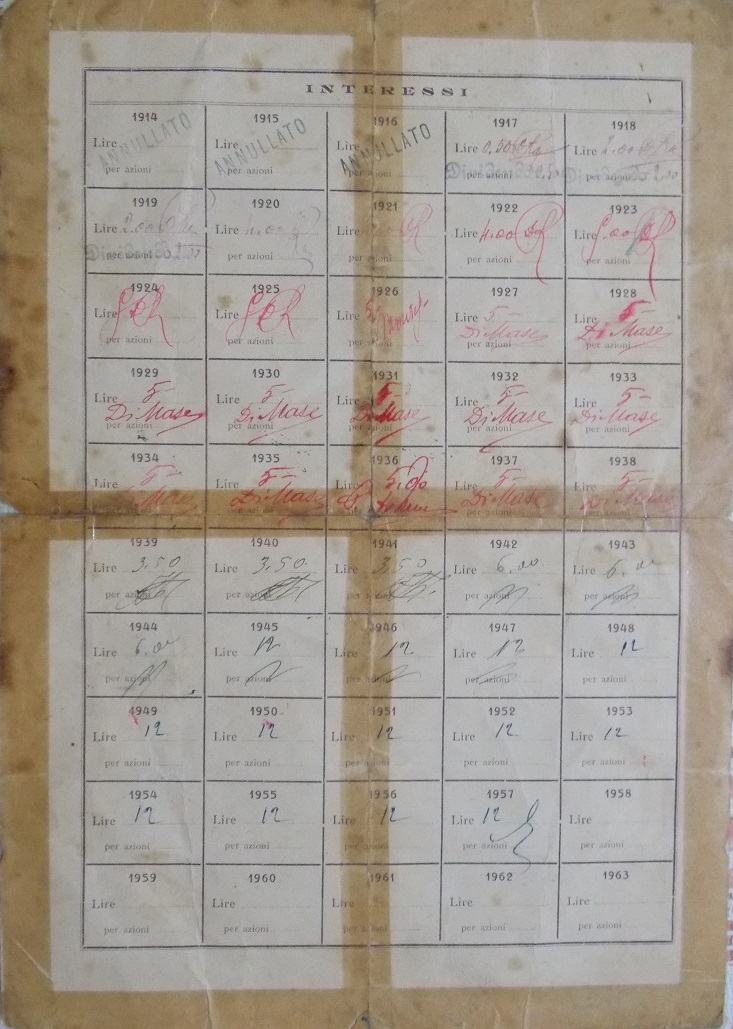 INTERESSI
1914 1915 1916 1917 1918
Lire Lire Lire Lire 0.50 Lire 2.00
ANNULLATO ANNULLATO ANNULLATO
per azioni per azioni per azioni
1919 1920 1921 1922 1923
Lire 2.00 Lire 4.00 Lire Lire 4.00 Lire 5.00
per azioni per azioni per azioni per azioni per azioni
1924 1925 1926 1927 1928
Lire 5 Lire 5 Lire 5 Lire 5- Lire 5-
Di Mase Di Mase
per azioni per azioni per azioni per azioni per azioni
1929 1930 1931 1932 1933
Lire 5- Lire 5- Lire 5- Lire 5- Lire 5-
Di Mase Di Mase Di Mase Di Mase Di Mase
per azioni per azioni per azioni per azioni per azioni
1934 1935 1936 1937 1938
Lire 5- Lire 5- Lire 5.00 Lire 5- Lire 5-
Di Mase Di Mase Di Mase Di Mase
per azioni per azioni per azioni per azioni
1939 1940 1941 1942 1943
Lire 3.50 Lire 3.50 Lire 3.50 Lire 6.00 Lire 6.00
per azioni per azioni per azioni per azioni per azioni
1944 1945 1946 1947 1948
Lire 6.00 Lire 12 Lire 12 Lire 12 Lire 12
per azioni per azioni per azioni per azioni per azioni
1949 1950 1951 1952 1953
Lire 12 Lire 12 Lire 12 Lire 12 Lire 12
per azioni per azioni per azioni per azioni per azioni
1954 1955 1956 1957 1958
Lire 12 Lire 12 Lire 12 Lire 12 Lire
per azioni per azioni per azioni per azioni per azioni
1959 1960 1961 1962 1963
Lire Lire Lire Lire Lire
per azioni per azioni per azioni per azioni per azioni